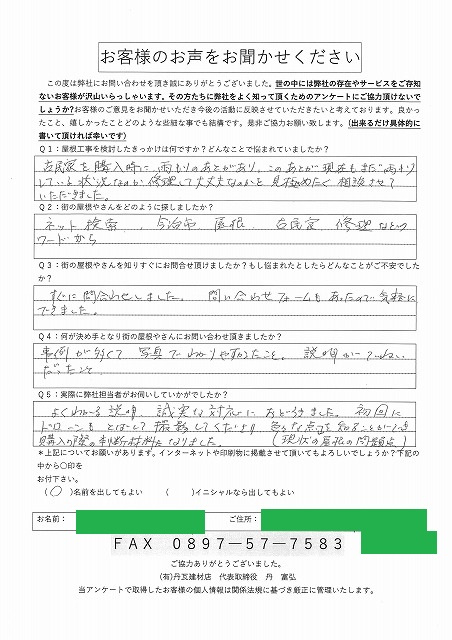 お客様のお声をお聞かせください
この度は弊社にお問い合わせを頂き誠にありがとうございました。世の中には弊社の存在やサービスをご存知
ないお客様が沢山いらっしゃいます。その方たちに弊社をよく知って頂くためのアンケートにご協力頂けないで
しょうか?お客様のご意見をお聞かせいただき今後の活動に反映させていただきたいと考えております。良かっ
たこと、嬉しかったことどのような些細な事でも結構です。是非ご協力お願い致します。(出来るだけ具体的に
書いて頂ければ幸いです)
Q1:屋根工事を検討したきっかけは何ですか?どんなことで悩まれていましたか?
古民家を購入時に、雨もりのあとがあり、このあとが現在もまだ雨もり
している状況なのか 修理して大丈夫なのかを見極めたく相談させて
いただきました。
Q2:街の屋根やさんをどのように探しましたか?
ネット検索、今治市 屋根、古民家 修理などの
ワードから
Q3:街の屋根やさんを知りすぐにお問合せ頂けましたか?もし悩まれたとしたらどんなことがご不安でした
か?
すぐに問合わせしました。 問い合わせフォームもあったので気軽に
できました。
Q4:何が決め手となり街の屋根やさんにお問い合わせ頂きましたか?
事例が多くて 写真でわかりやすかったこと。 説明がていねい
だったこと。
Q5:実際に弊社担当者がお伺いしていかがでしたか?
よくわかる説明、誠実な対応におどろきました。 初回に
ドローンもとばして撮影してくださり 色んな点を知ることができ
購入の際の判断材料になりました。 (現状の屋根の問題点)
*上記についてお願いがあります。インターネットや印刷物に掲載させて頂いてもよろしいでしょうか?下記の
中から〇印を
お付下さい。
(〇)名前を出してもよい ( )イニシャルなら出してもよい
お名前: ご住所:
FAX 0897-57-7583
ご協力ありがとうございました。
(有)丹瓦建材店 代表取締役 丹 富弘
当アンケートで取得したお客様の個人情報は関係法規に基づき厳正に管理いたします。